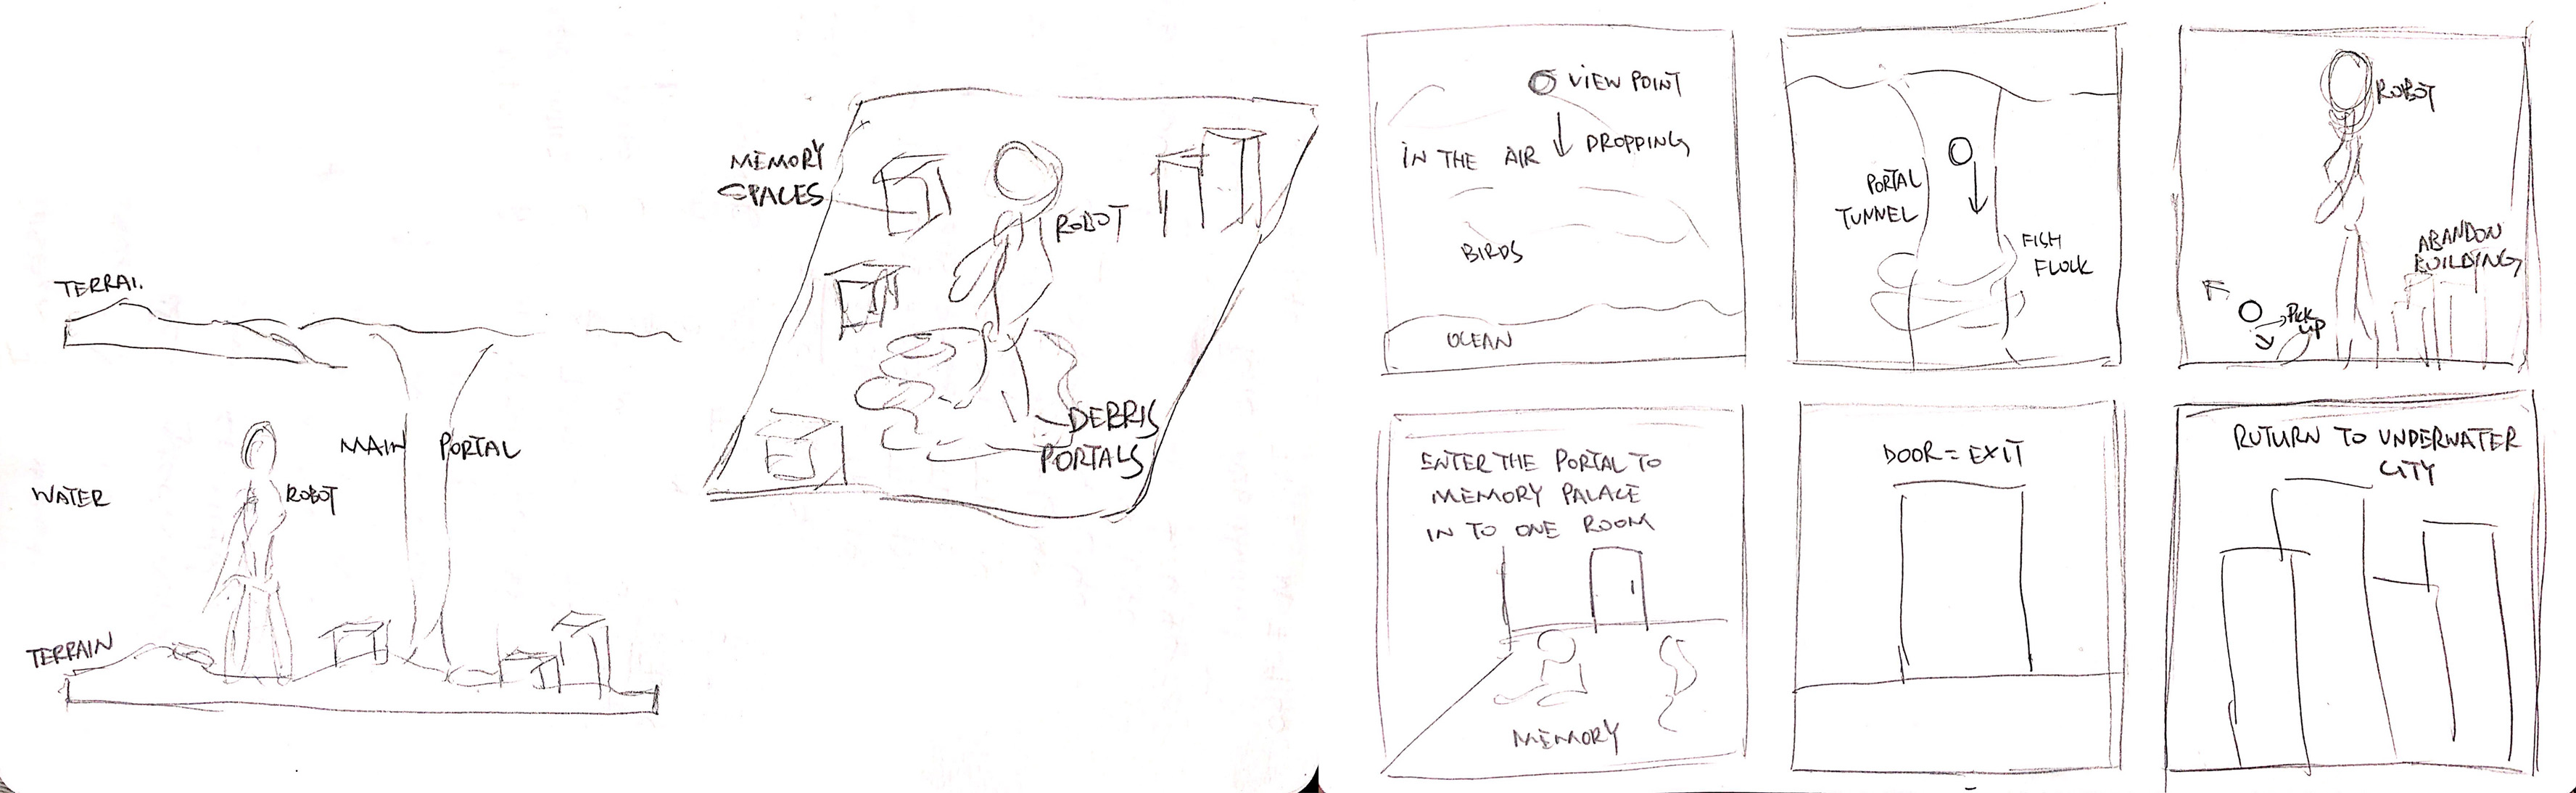 TERRAI.
MAIN PORTAL
WATER
ROBOT
TERRAIN
MEMORY
SPACES
ROBOT
DEBRIS
PORTALS
VIEW POINT
IN THE AIR
DROPPING
BIRDS
OCEAN
PORTAL
TUNNEL
FISH
FLOCK
ROBOT
ABANDON
BUILDING
PICK
UP
ENTER THE PORTAL TO
MEMORY PALACE
IN TO ONE ROOM
MEMORY
DOOR = EXIT
RUTURN TO UNDERWATER
CITY